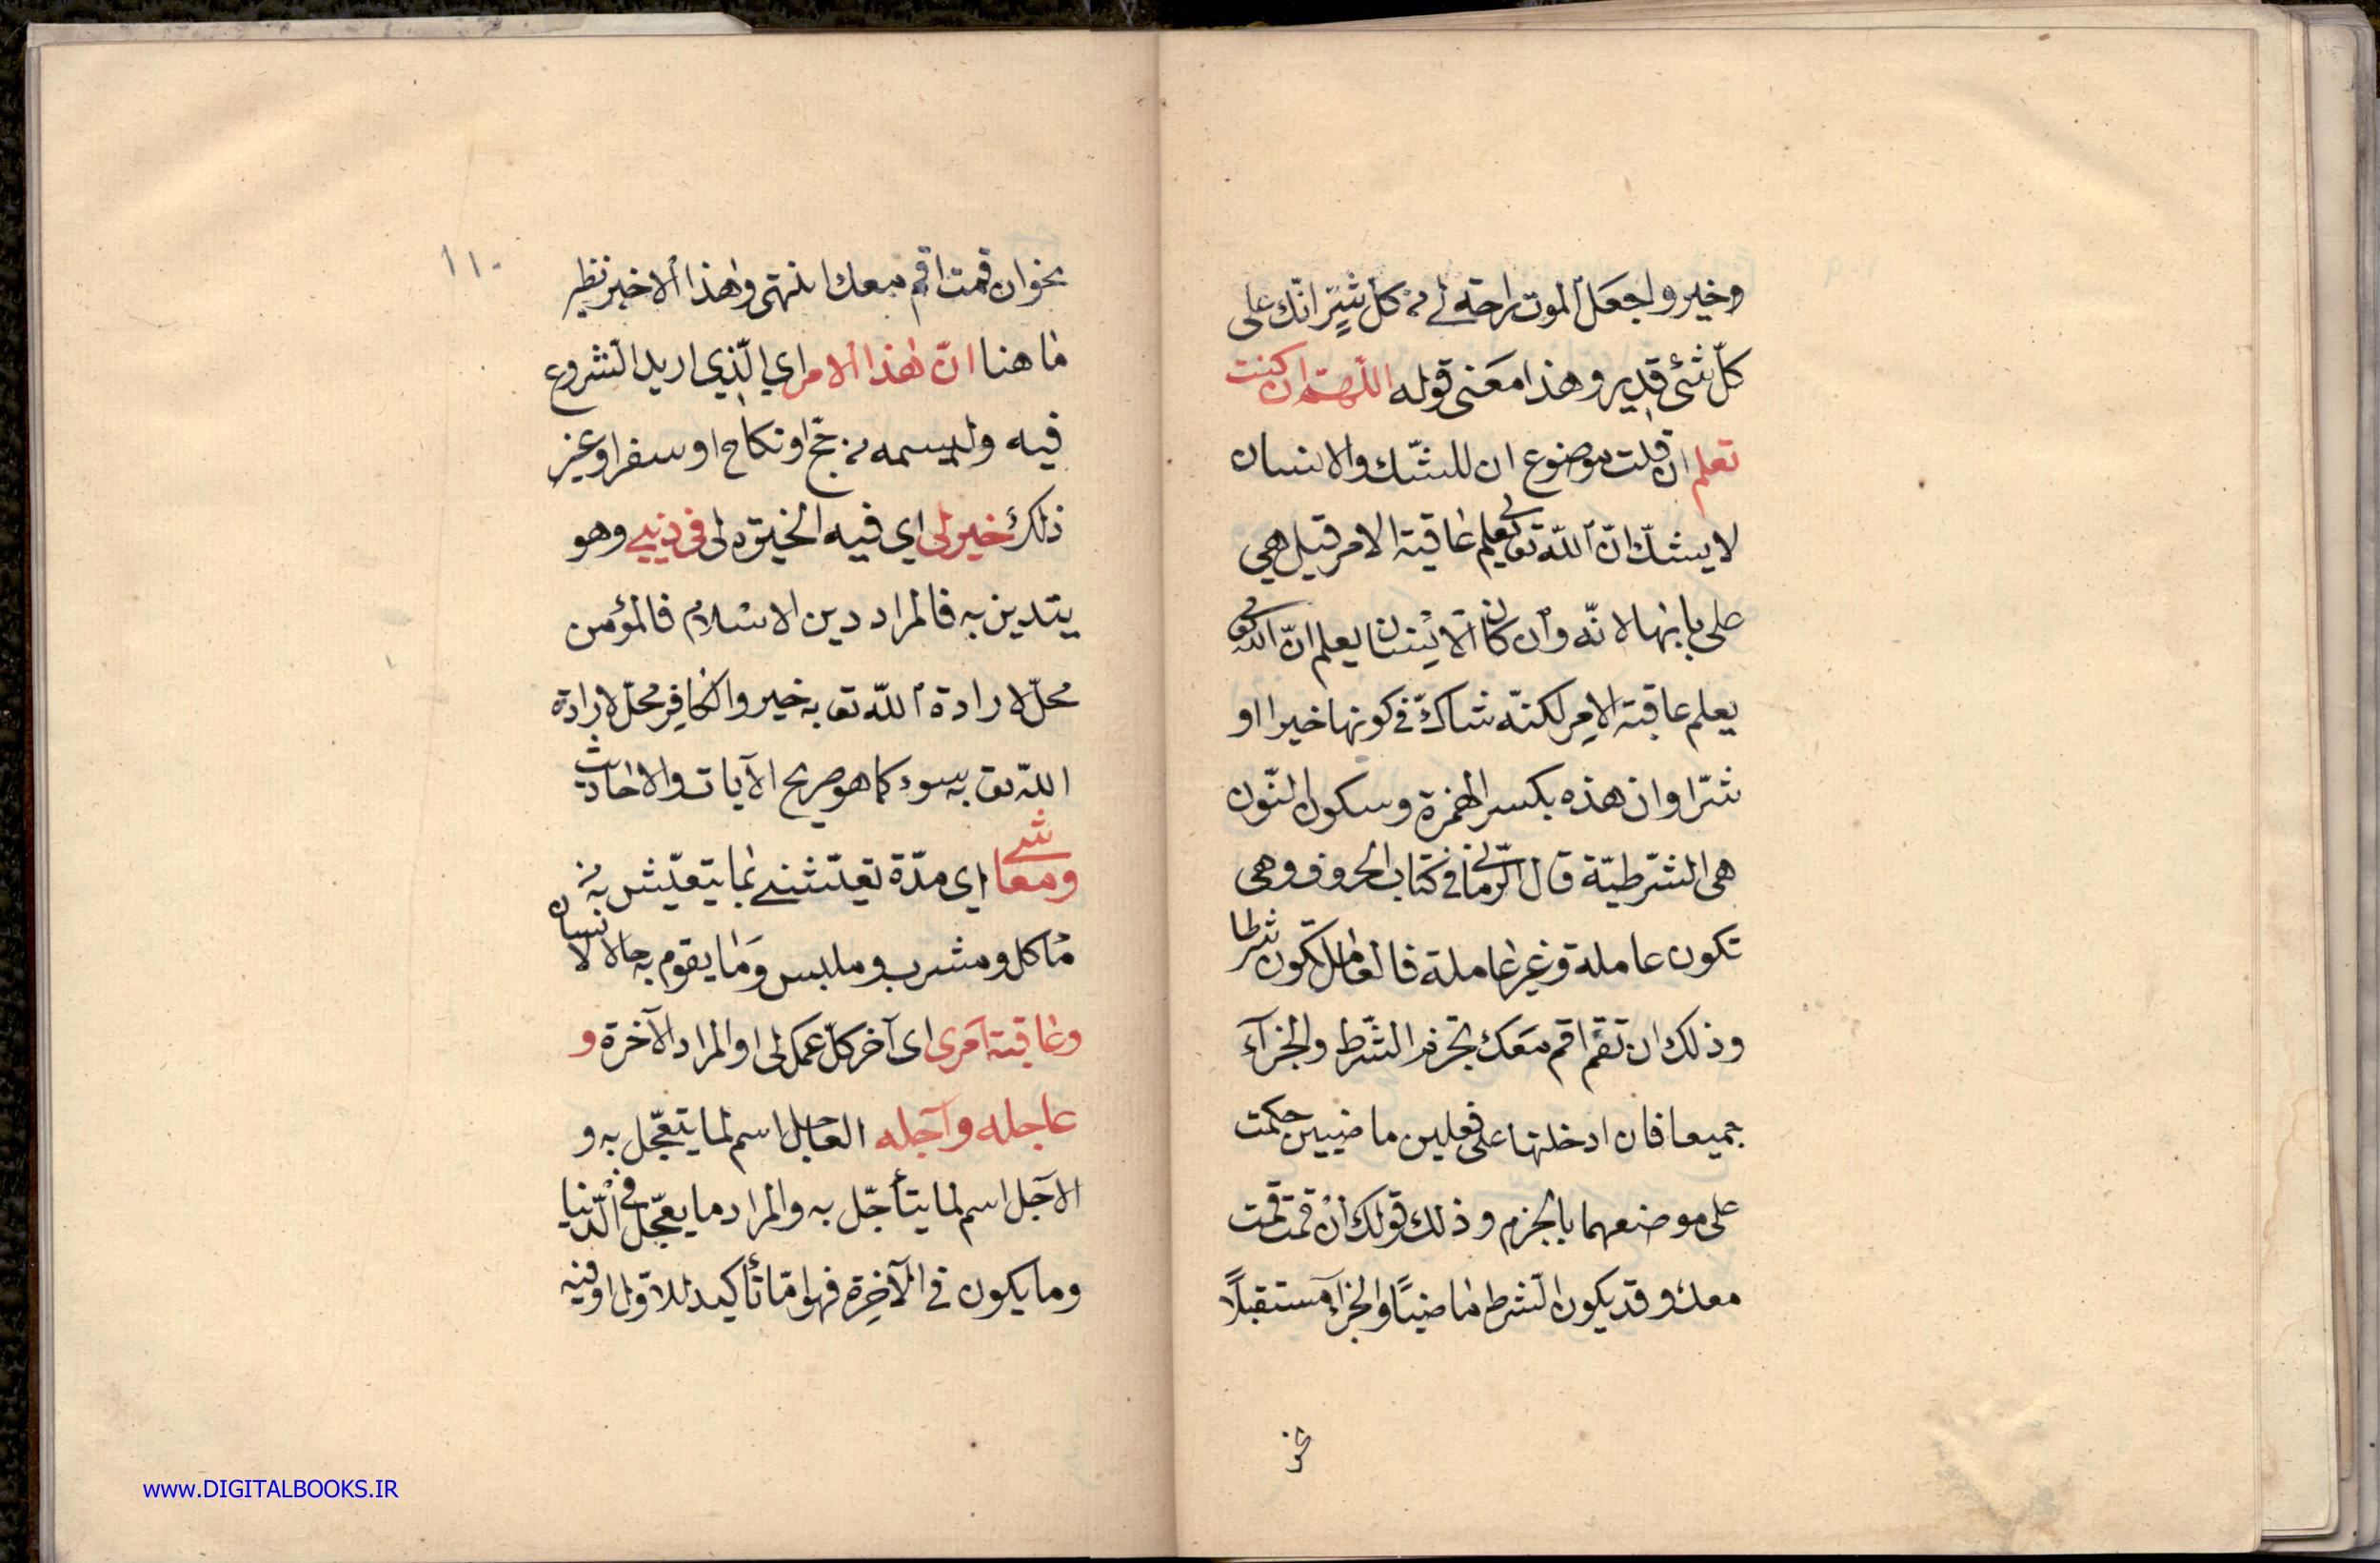 وخير واجعل الموت راحة لي من كل شرّ انّك على
كلّ شئ قدير وهذا معنى قوله اللّهمّ ان كنت
تعلم ان قلت موضوع ان للشّك والانسان
لا يشكّ انّ اللّه تعالى يعلم عاقبة الامر قيل هي
على بابها لانّه وان كان الانسان يعلم انّ اللّه تعالى
يعلم عاقبة الامر لكنّه شاكّ في كونها خيرا او
شرّا وان هذه بكسر الهمزة وسكون النّون
هى الشّرطيّة قال الرّمانى في كتاب الحروف وهى
تكون عاملة وغير عاملة فالعامل تكون شرطا
وذلك ان تقم اقم معك تجزم الشّرط والجزآء
جميعا فان ادخلتها على فعلين ماضيين حكمت
على موضعهما بالجزم وذلك قولك ان قمت قمت
معك وقد يكون الشّرط ماضيًا والجزآء مستقبلًا
نحو
١١٠
نحو ان قمت اقم معك انتهى وهذا الاخير نظير
ما هنا انّ هذا الامر اي الّذي اريد الشّروع
فيه وليسمه من حجّ او نكاح او سفر او غير
ذلك خير لى اي فيه الخيرة لى فى دينى وهو
يتدين به فالمراد دين الاسلام فالمؤمن
محلّ لارادة اللّه تع به خير والكافر محلّ لارادة
اللّه تع به سوء كما هو صريح الآيات والاحاديث
ومعاشى اي مدّة تعيّشنى بما يتعيّش به من
مأكل ومشرب وملبس وما يقوم به حال الانسان
وعاقبة امرى اى آخر كلّ عمل لى او المراد الآخرة و
عاجله وآجله العاجل اسم لما يتعجّل به و
الآجل اسم لما يتأجّل به والمراد ما يعجّل في الدّنيا
وما يكون في الآخرة فهو امّا تأكيد للاوّل او فيه
www.DIGITALBOOKS.IR